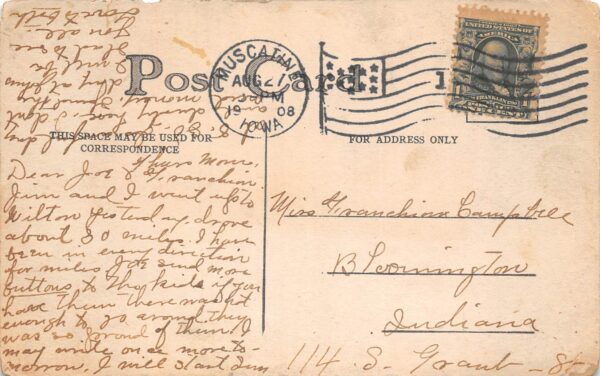 Post Card
MUSCATINE
AUG 27
PM
1908
IOWA
UNITED STATES OF
AMERICA
FRANKLIN
THIS SPACE MAY BE USED FOR
CORRESPONDENCE
FOR ADDRESS ONLY
Thurs Morn,
Dear Joe & Franchion
Jim and I went up to
Wilton yesterday drove
about 30 miles. I have
been in every direction
for miles Joe send more
buttons to Thy kids if you
have them there was not
enough to go around they
was so proud of them. I
may write once more to-
morrow, I will start Sun
glad to see
you all.
Love to both
Miss Franchion Campbell
Bloomington
Indiana
114 S. Grant - St